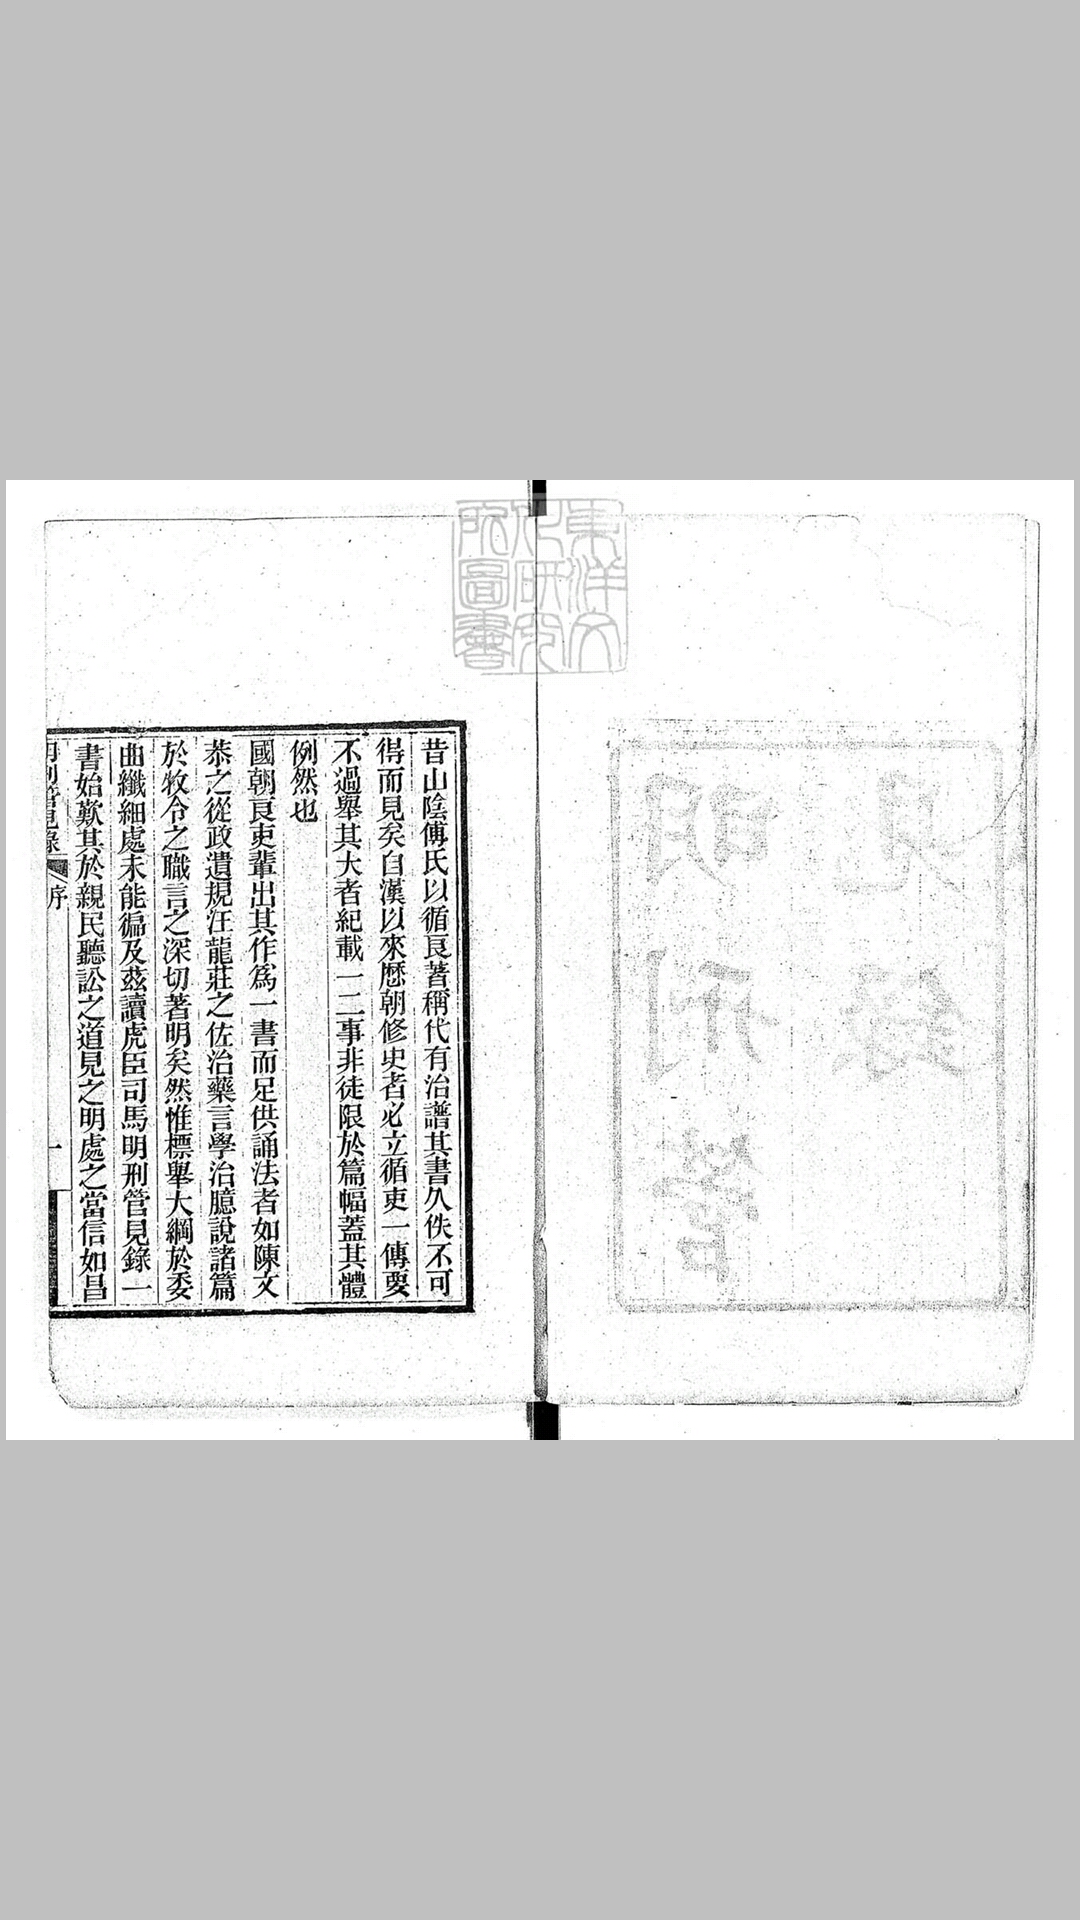 東洋文
化研究
所圖書
昔山陰傅氏以循良著稱代有治譜其書久佚不可
得而見矣自漢以來歷朝修史者必立循吏一傳要
不過舉其大者紀載一二事非徒限於篇幅蓋其體
例然也
國朝良吏輩出其作爲一書而足供誦法者如陳文
恭之從政遺規汪龍莊之佐治藥言學治臆說諸篇
於牧令之職言之深切著明矣然惟標舉大綱於委
曲纖細處未能徧及茲讀虎臣司馬明刑管見錄一
書始歎其於親民聽訟之道見之明處之當信如昌
明刑管見錄 序 一
明刑管
見錄